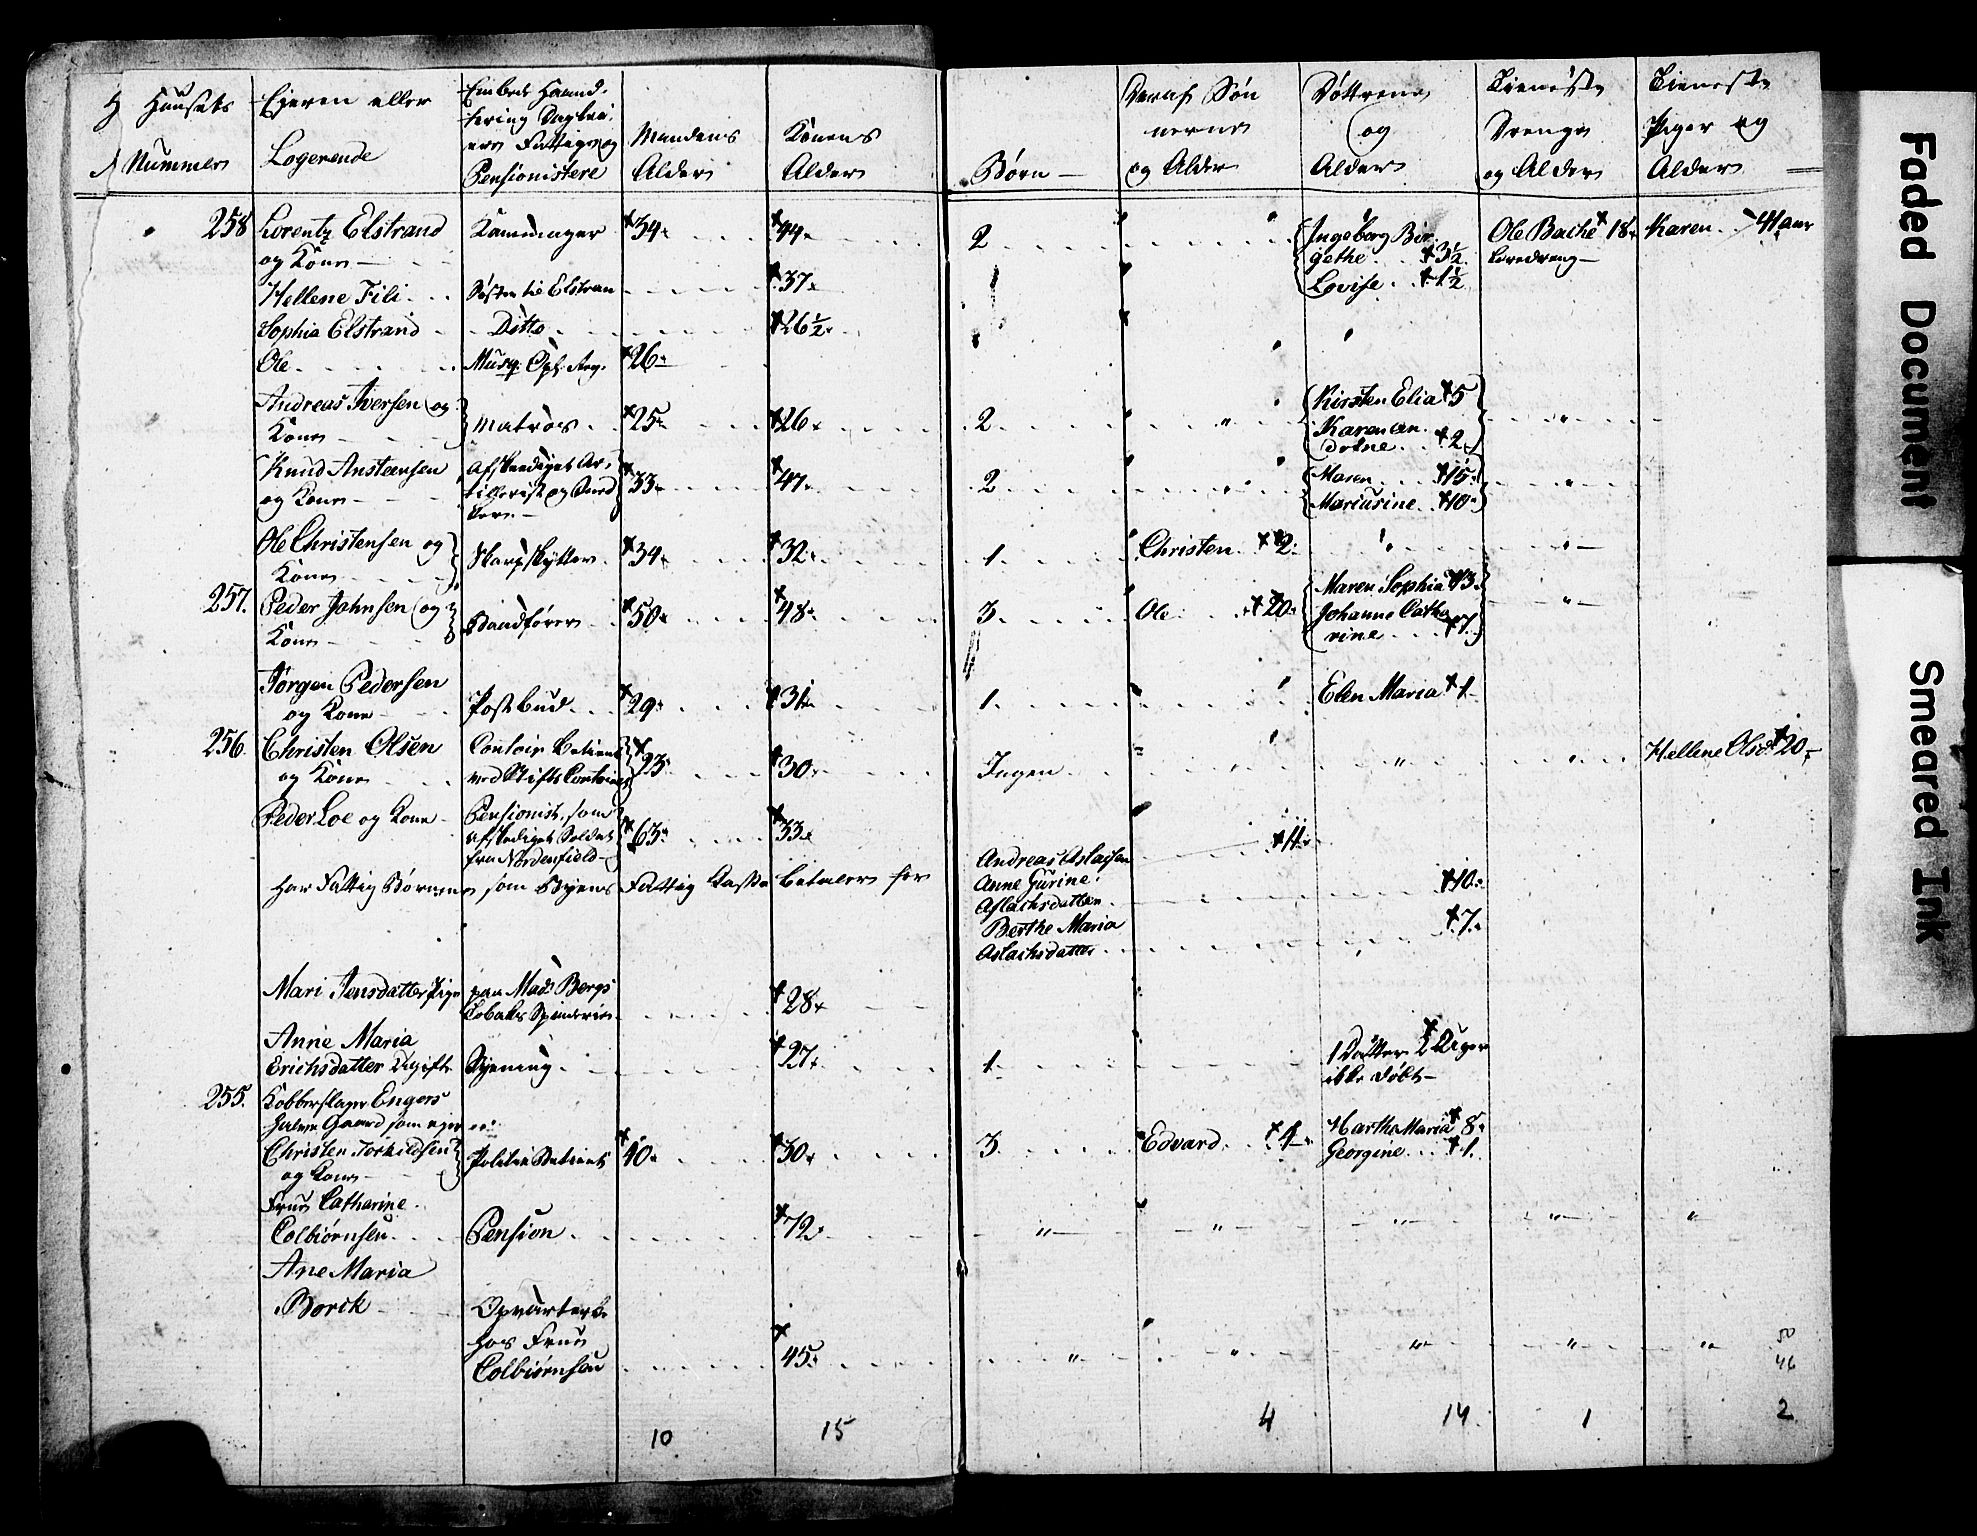 Huusets Nummer
Ejeren eller Logerende
Embede Haand-
tering Daglei-
ere Fattige og
Pensionistere
Mandens Alder
Konens Alder
Børn
Deraf Søn
nerne
og Alder
Døttrene
og
Alder
Tieneste
Drenge
og Alder
Tieneste
Piger og
Alder
258 Lorentz Elstrand 34 44 2 Ingeborg Bir Ole Bache 18 Karen 41 aar
og Kone gethe 3½
Hellene Fili Søster til Elstran 37 Lovise 1½
Sophia Elstrand Ditto 26½
Ole Musq: Opl. Reg. 26
Andreas Iversen og Kirsten Elia 5
Kone Matros 25 26 2 Karen
dotne 2
Knud Ansteensen Afskediget Ar- Maren 15
og Kone tillerist og Sned 33 47 2 Mariusine 10
ker
Ole Christensen og
Kone Skarpskytter 34 32 1 Christen 2
257. Peder Jahnsen og Maren Sophia 13
Kone 50 48 3 Ole 20 Johanne Catha
rine 7
Jørgen Pedersen
og Kone Postbud 29 31 1 Elen Maria 1
256. Christen Olsen Contoir Betient
og Kone ved Stifts Contoiret 23 30 Ingen Hellene Olsd 20
Peder Loe og Kone Pensionist, som
afskediget Soldat 63 33
fra Nordenfield
Andreas Aslaksen 11
Har Fattig Børnene som Byens Fattig Casse betaler for
Anne Gurine
Aslachsdatter 10
Berthe Maria 7
Aslachsdatter
Mari Jensdatter Pige paa Mad: Bergs
Tobaks Spinderie 28
Anne Maria
Erichsdatter Ugift Syening 27 1 1 Datter 2 Uger
ikke døbt
255. Kobberslager Engers
Gaard som ejer
Christen Torkildsen 3 Edvard 4 Marthe Maria 8
og Kone Politie Betient 40 30 Georgine 1
Frue Catharine
Colbiørnsen Pension 72
Ane Maria
Borck Opvarterske
hos Frue
Colbiørnsen 45
50
46
10 15 4 14 1 2
Faded Document
Smeared Ink